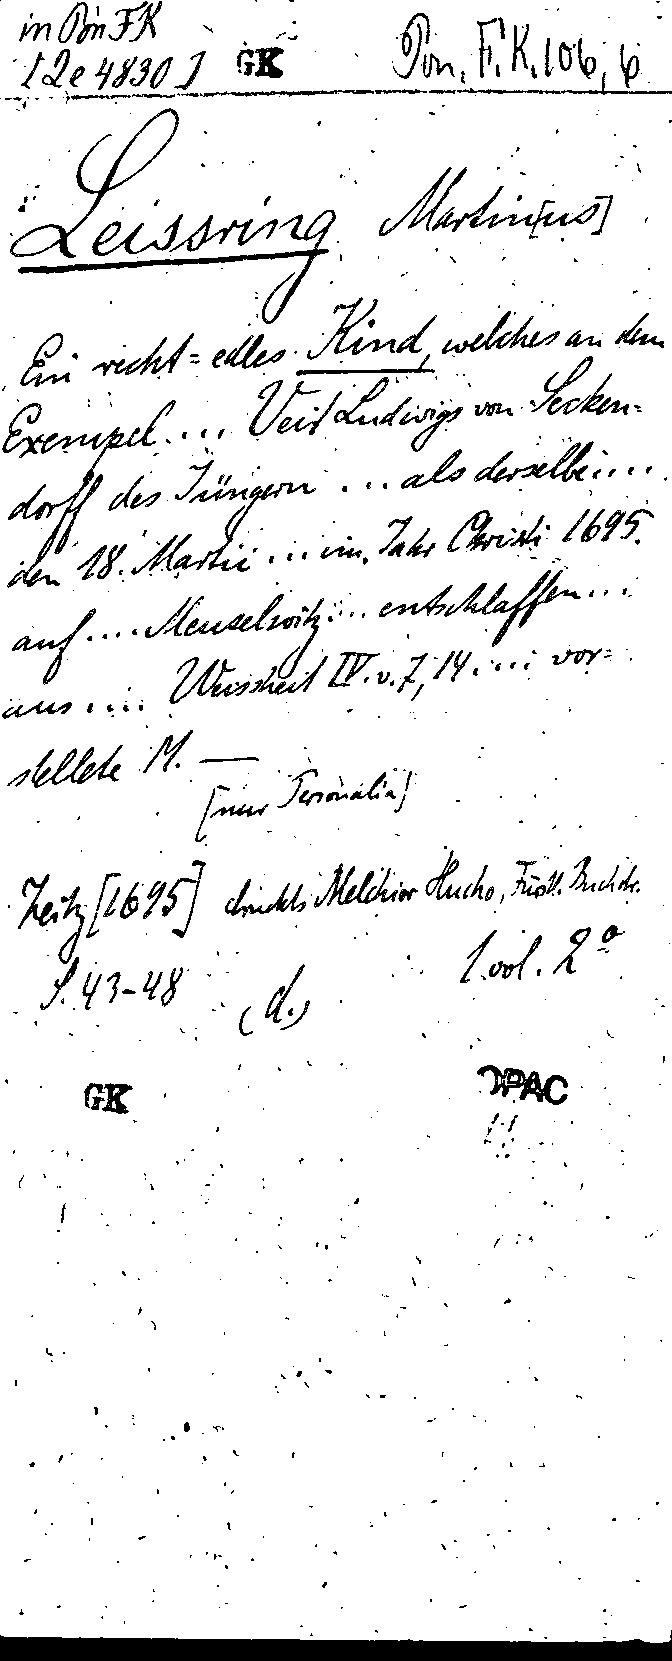 in Pon FK
[2e 4830] GK Pon. F.K. 106, 6
Leissring Martin[us]
Ein recht=edles Kind, welches an dem
Exempel ... Veit Ludwigs von Secken=
dorff des Jüngern ... als derselbe ...
den 18. Martii ... im Jahr Christi 1695.
auf .... Meuselwitz ... entschlaffen ...
aus .... Weissheit IV. v. 7, 14 .... vor=
stellete M. —
[nur Personalia]
Zeitz [1695] druckts Melchior Hucho, Fürstl. Buchdr.
S. 43-48 (d.) 1 vol. 2º
GK OPAC